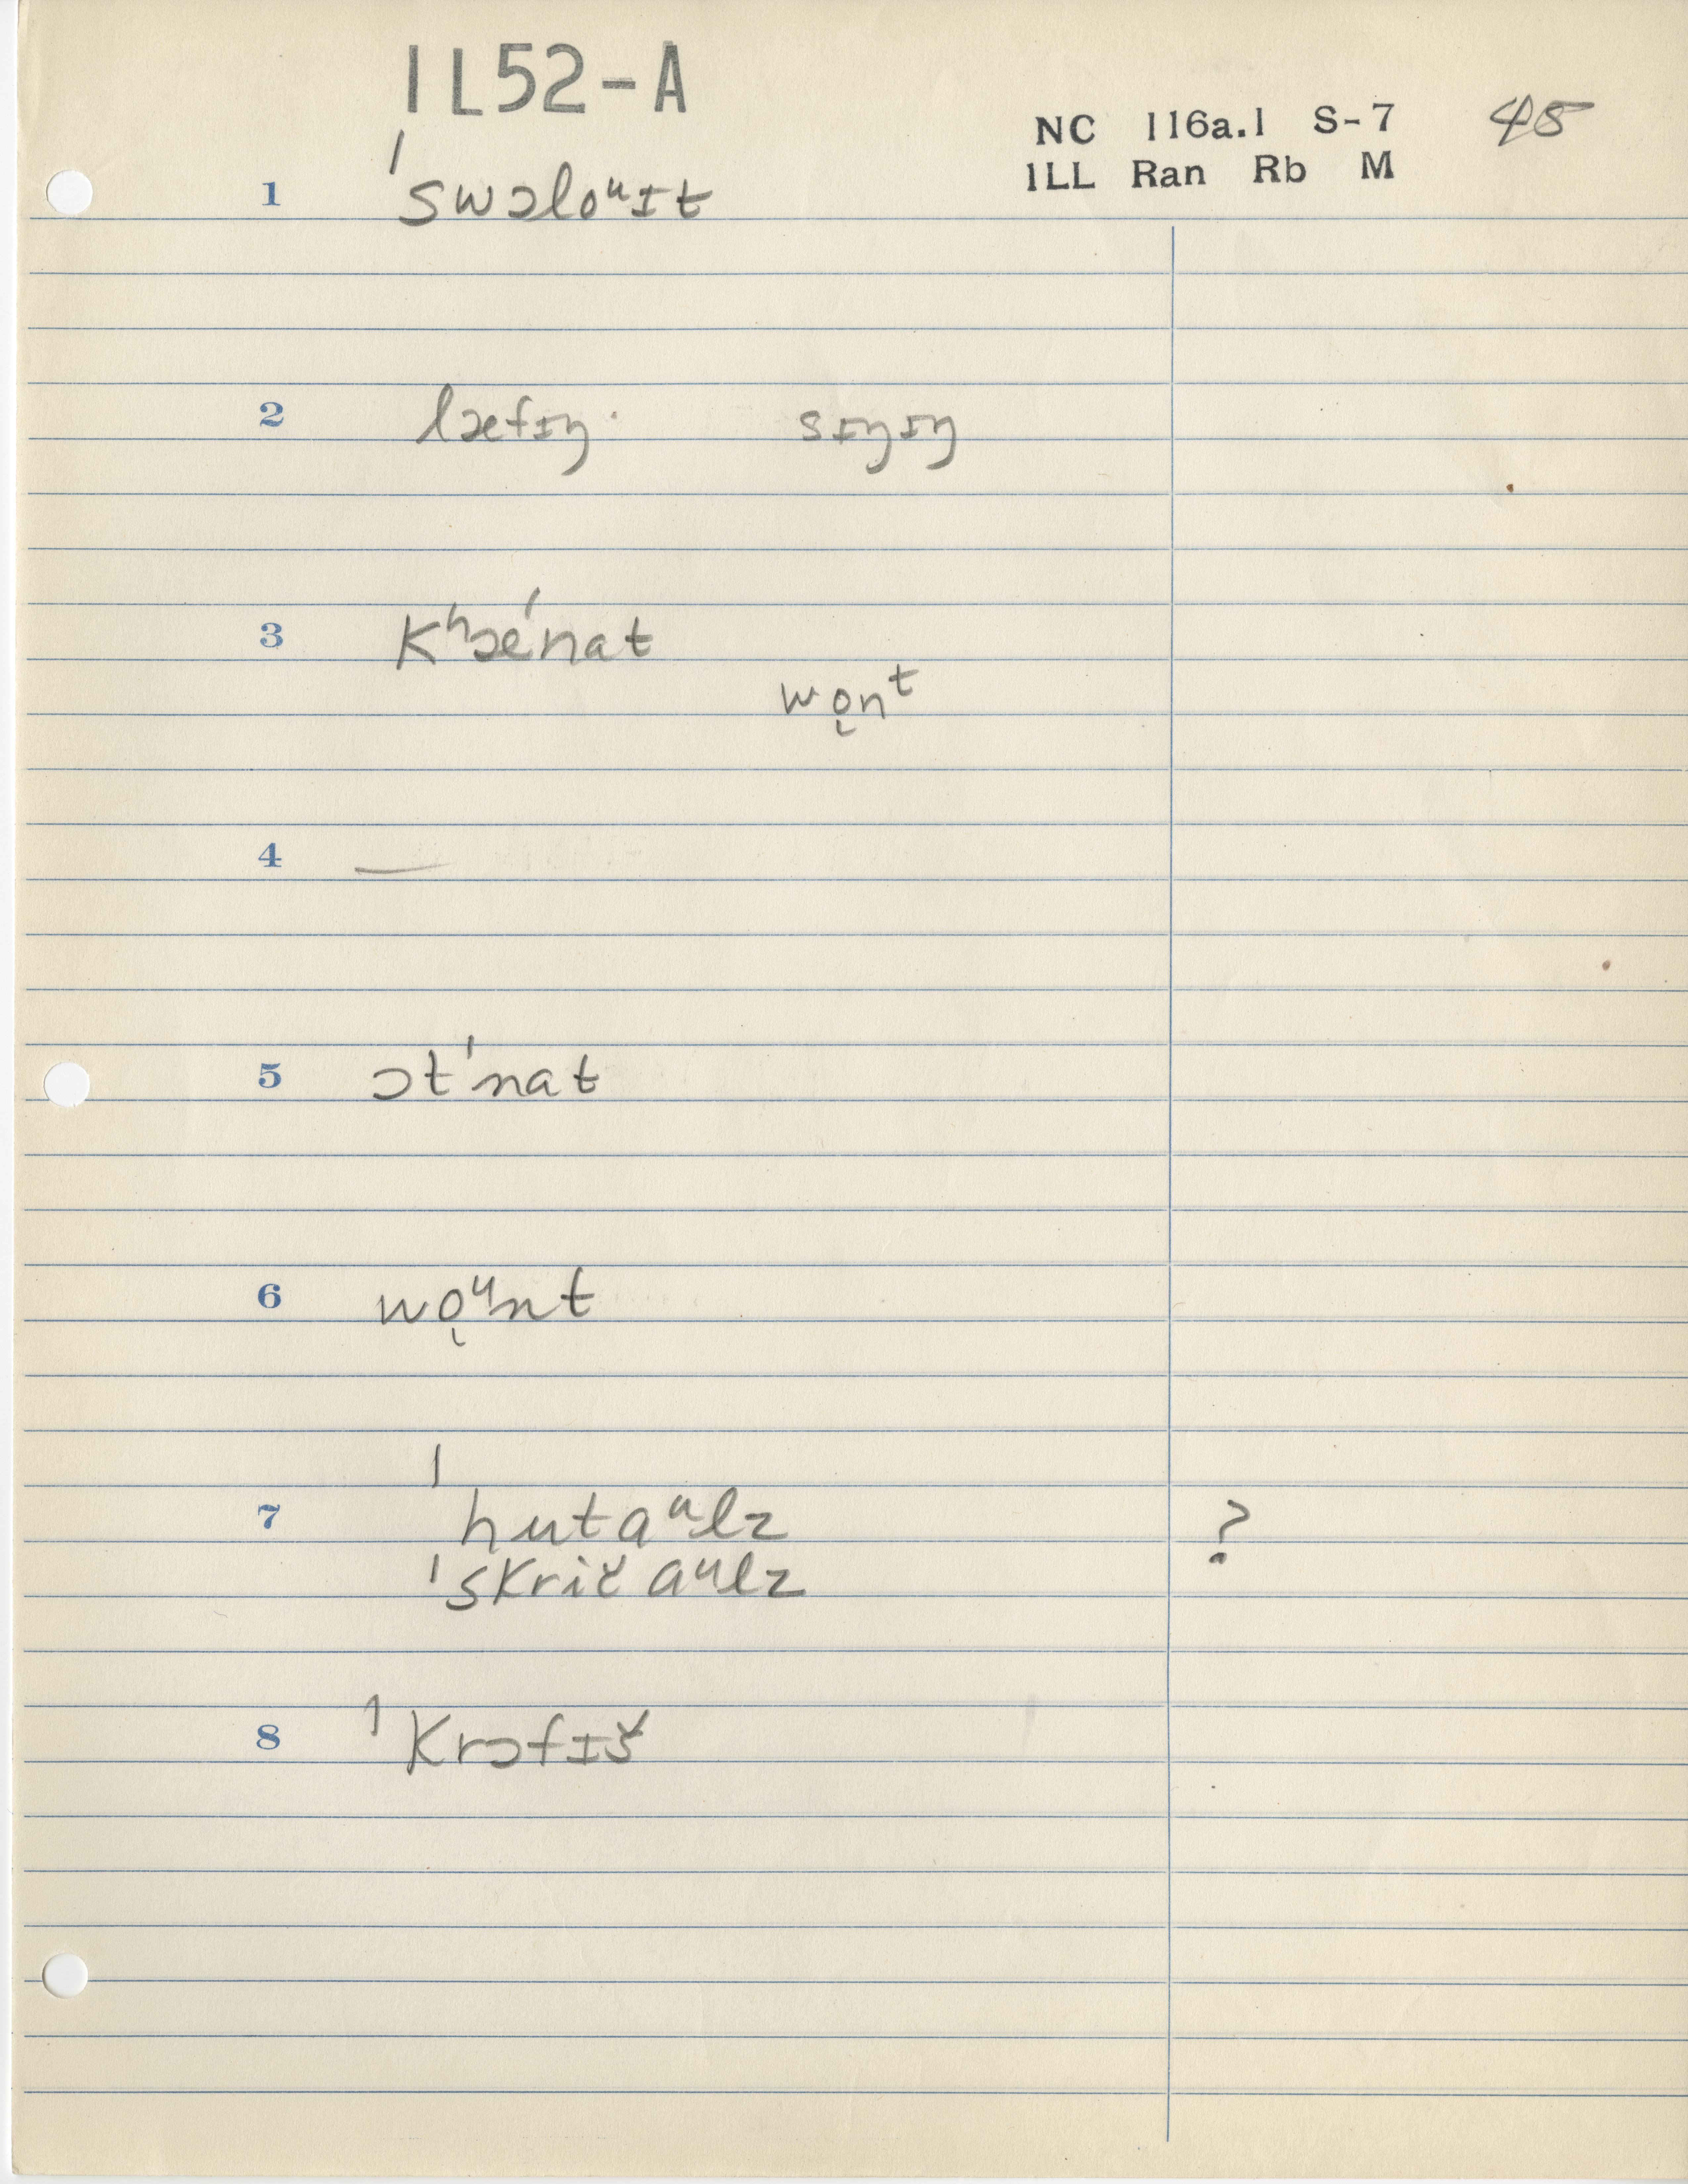 1L52-A
NC 116a.1 S-7 45
1LL Ran Rb M
1 ˈswɔloᵘɪt
2 læfɪŋ· sɪŋɪŋ
3 Kʰæˊnat
wo̜nᵗ
4 —
5 ɔtˈnat
6 wo̜ᵘnt
7 ˈhutaᵘlz ?
ˈskričaᵘlz
8 ˈKrɔfɪš